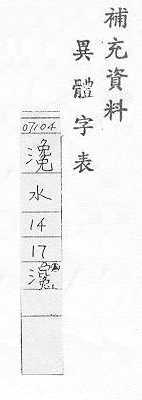 補充資料
異體字表
07104
水
14
17